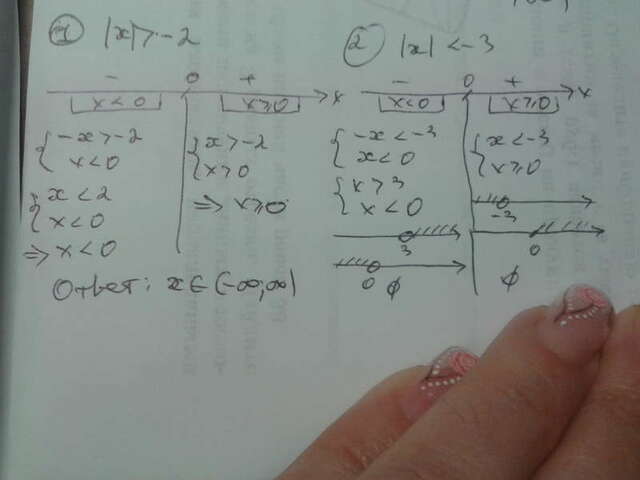 1 |x| > -2
- 0 +
x < 0 x ≥ 0 x
{ -x > -2
x < 0
{ x < 2
x < 0
⇒ x < 0
{ x > -2
x > 0
⇒ x ≥ 0
Ответ: x ∈ (-∞; ∞)
2 |x| < -3
- 0 +
x < 0 x ≥ 0 x
{ -x < -3
x < 0
{ x > 3
x < 0
3
0 ∅
{ x < -3
x ≥ 0
-3
0
∅